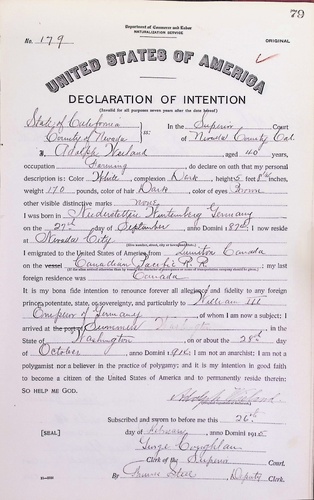 79
Department of Commerce and Labor
NATURALIZATION SERVICE
No. 179
ORIGINAL
UNITED STATES OF AMERICA
DECLARATION OF INTENTION
(Invalid for all purposes seven years after the date hereof)
State of California
County of Nevada
ss:
In the Superior Court
of Nevada County Cal.
I, Adolph Weiland, aged 40 years,
occupation Farming, do declare on oath that my personal
description is: Color White, complexion Dark, height 5 feet inches,
weight 170 pounds, color of hair Dark, color of eyes Brown
other visible distinctive marks none
I was born in Germany
on the 27th day of September, anno Domini 1874; I now reside
at Nevada City
I emigrated to the United States of America from Canada
on the vessel Canadian Pacific R.R.; my last
foreign residence was Canada
It is my bona fide intention to renounce forever all allegiance and fidelity to any foreign
prince, potentate, state, or sovereignty, and particularly to William III
Emperor of Germany, of whom I am now a subject; I
arrived at the port of, in the
State of Washington on or about the 28th day
of October, anno Domini; I am not an anarchist; I am not a
polygamist nor a believer in the practice of polygamy; and it is my intention in good faith
to become a citizen of the United States of America and to permanently reside therein:
SO HELP ME GOD.
Subscribed and sworn to before me this 26th
[SEAL]
day of February, anno Domini 1915
Clerk of the Superior Court.
By, Deputy Clerk.